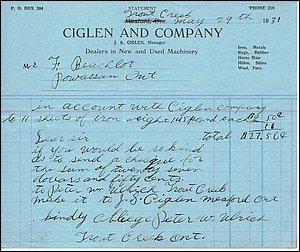 P. O. BOX 304 STATEMENT PHONE 210
Trout Creek
Meaford, Ont. May 29th 1931
CIGLEN AND COMPANY
J. S. CIGLEN, Manager
Dealers in New and Used Machinery
Iron, Metals
Rags, Rubber
Horse Hair
Hides, Skins
Wool, Furs
F. Beachlor
Powassan Ont
in account with Ciglen company
to 11 sheets of Iron weight 145 pound each
Total $27.50
Dear Sir
if you would be so kind
as to send a cheque for
the sum of twenty seven
dollars and fifty cents
to Peter W. Ulrich Trout Creek
make it to J. S. Ciglen Meaford Ont
kindly oblige Peter W. Ulrich
Trout Creek Ont.